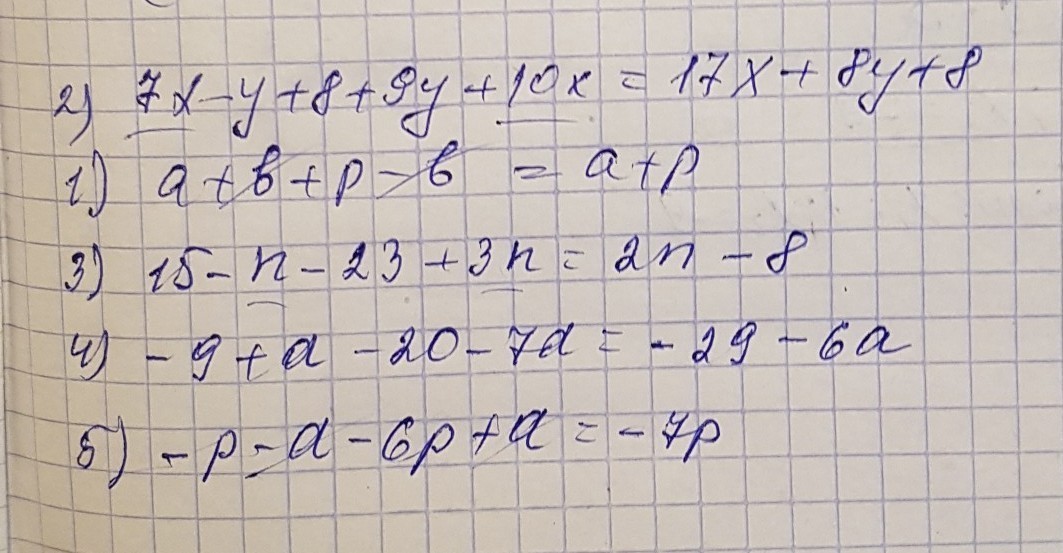 2) 7x-y+8+9y+10x = 17x+8y+8
1) a+b+p-b = a+p
3) 15-n-23+3n = 2n-8
4) -9+a-20-7a = -29-6a
5) -p-a-6p+a = -7p